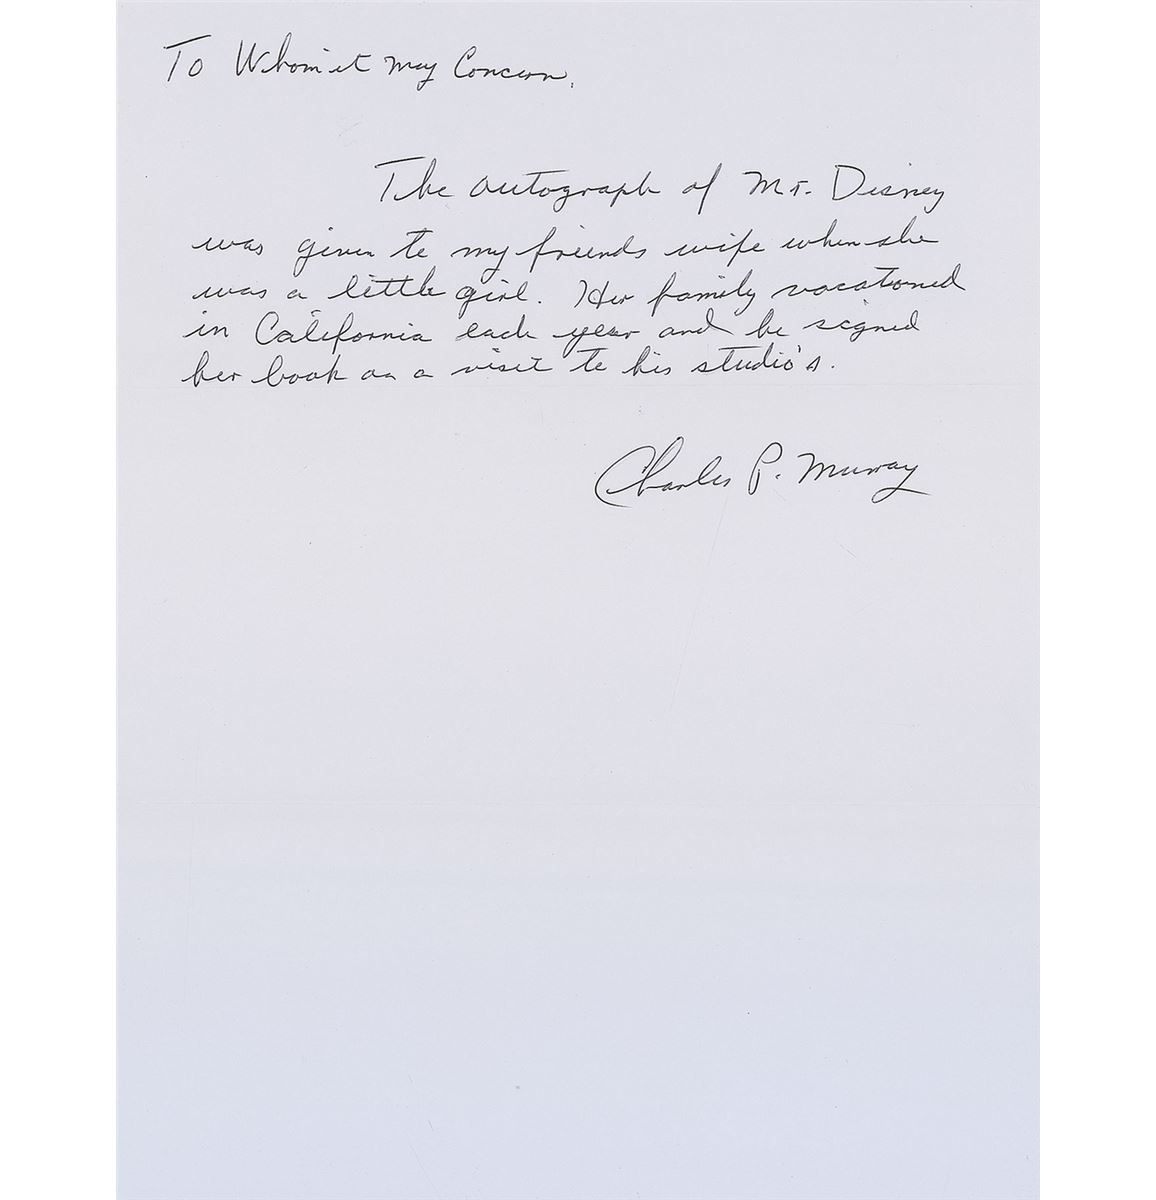 To Whom it May Concern,
The autograph of Mr. Disney
was given to my friends wife when she
was a little girl. Her family vacationed
in California each year and he signed
her book on a visit to his studio's.
Charles P. Murray